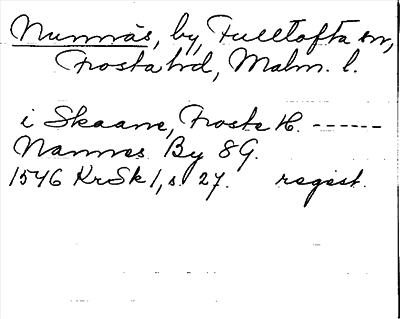 Nunnäs, by, Fulltofta sn,
Frosta hd, Malm. l.
i Skaane, Froste H. ------
Nannes By 8 G.
1546 KrSk 1, s. 27. regest.